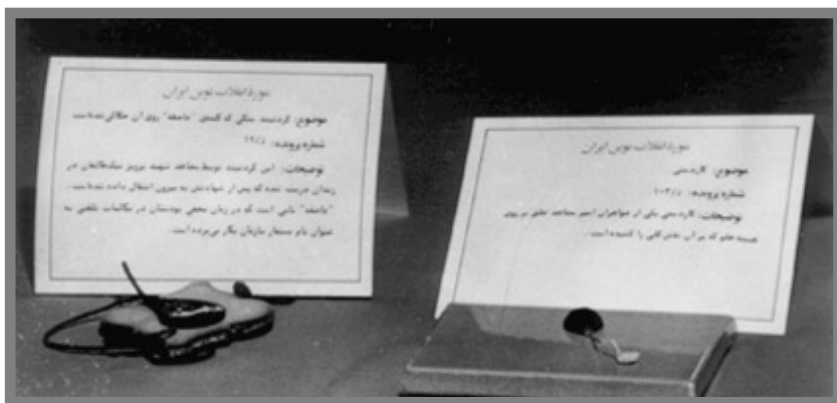 موزهٔ انقلاب نوین ایران
موضوع: گردنبند سنگی که کلمهٔ "عاصفه" روی آن حکاکی شده‌است
شماره پرونده:
توضیحات: این گردنبند توسط مجاهد شهید پرویز در
زندان درست شده که پس از شهادتش به بیرون انتقال داده شده‌است.
"عاصفه" نامی است که در زمان مخفی بودنمان در مکالمات تلفنی به
عنوان نام مستعار سازمان بکار می‌برده است.
موزهٔ انقلاب نوین ایران
موضوع: کاردستی
شماره پرونده:
توضیحات: کاردستی یکی از خواهران اسیر مجاهد خلق بر روی
هسته که بر آن نقش گلی را کشیده است.